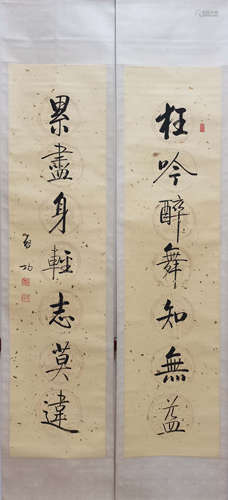 枉吟醉舞知無益
累盡身輕志莫違
啓功